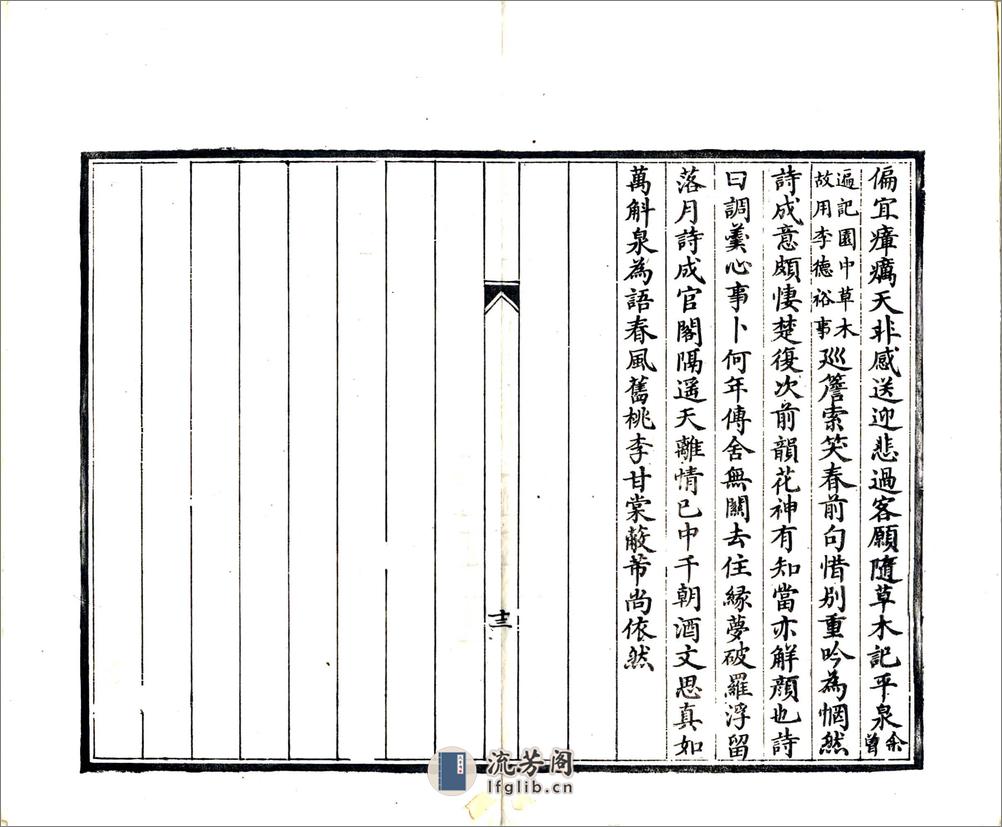 偏宜瘴癘天非感送迎悲過客願隨草木記平泉余曾
遍記園中草木故用李德裕事巡簷索笑春前句惜别重吟為惘然
詩成意頗悽楚復次前韻花神有知當亦解顔也詩
曰調羹心事卜何年傳舍無關去住緣夢破羅浮留
落月詩成官閣隔遥天離情已中千朝酒文思真如
萬斛泉為語春風舊桃李甘棠蔽芾尚依然
十三
流芳阁
lfglib.cn